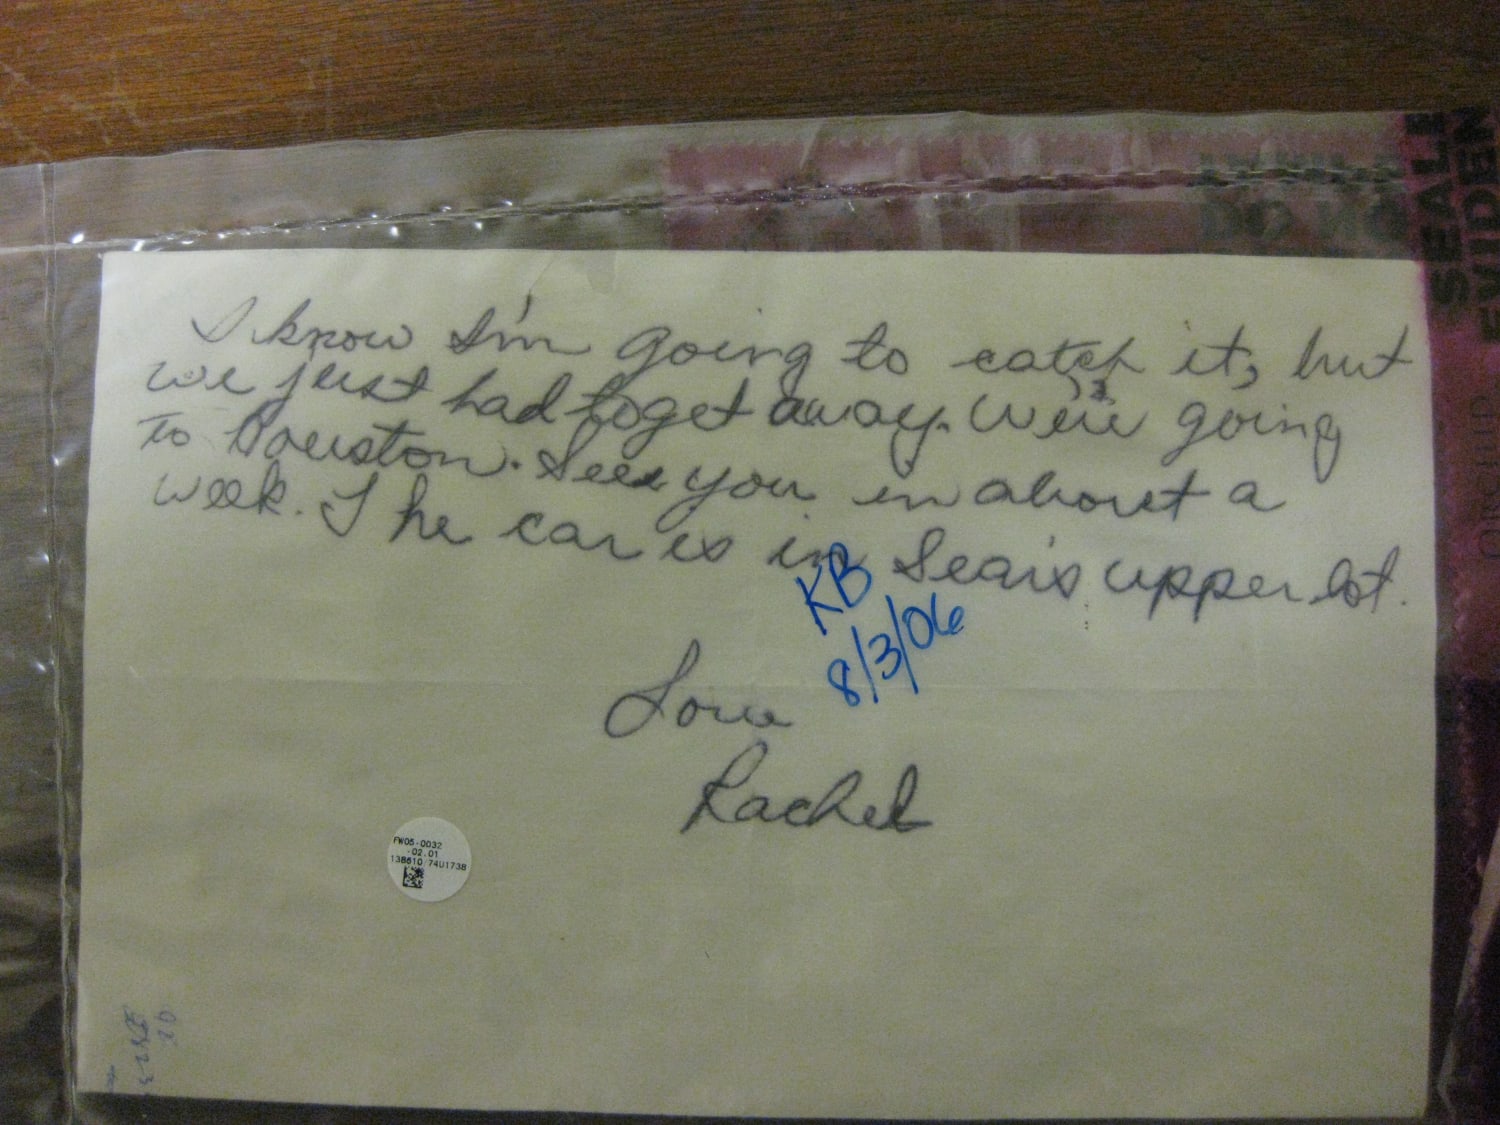 I know I'm going to catch it, but
we just had to get away. We're going
to Houston. See you in about a
week. The car is in Sear's upper lot.
KB
8/3/06
Love
Rachel
FW05-0032
-02.01
138610 74U1738
SEALE
EVIDEN